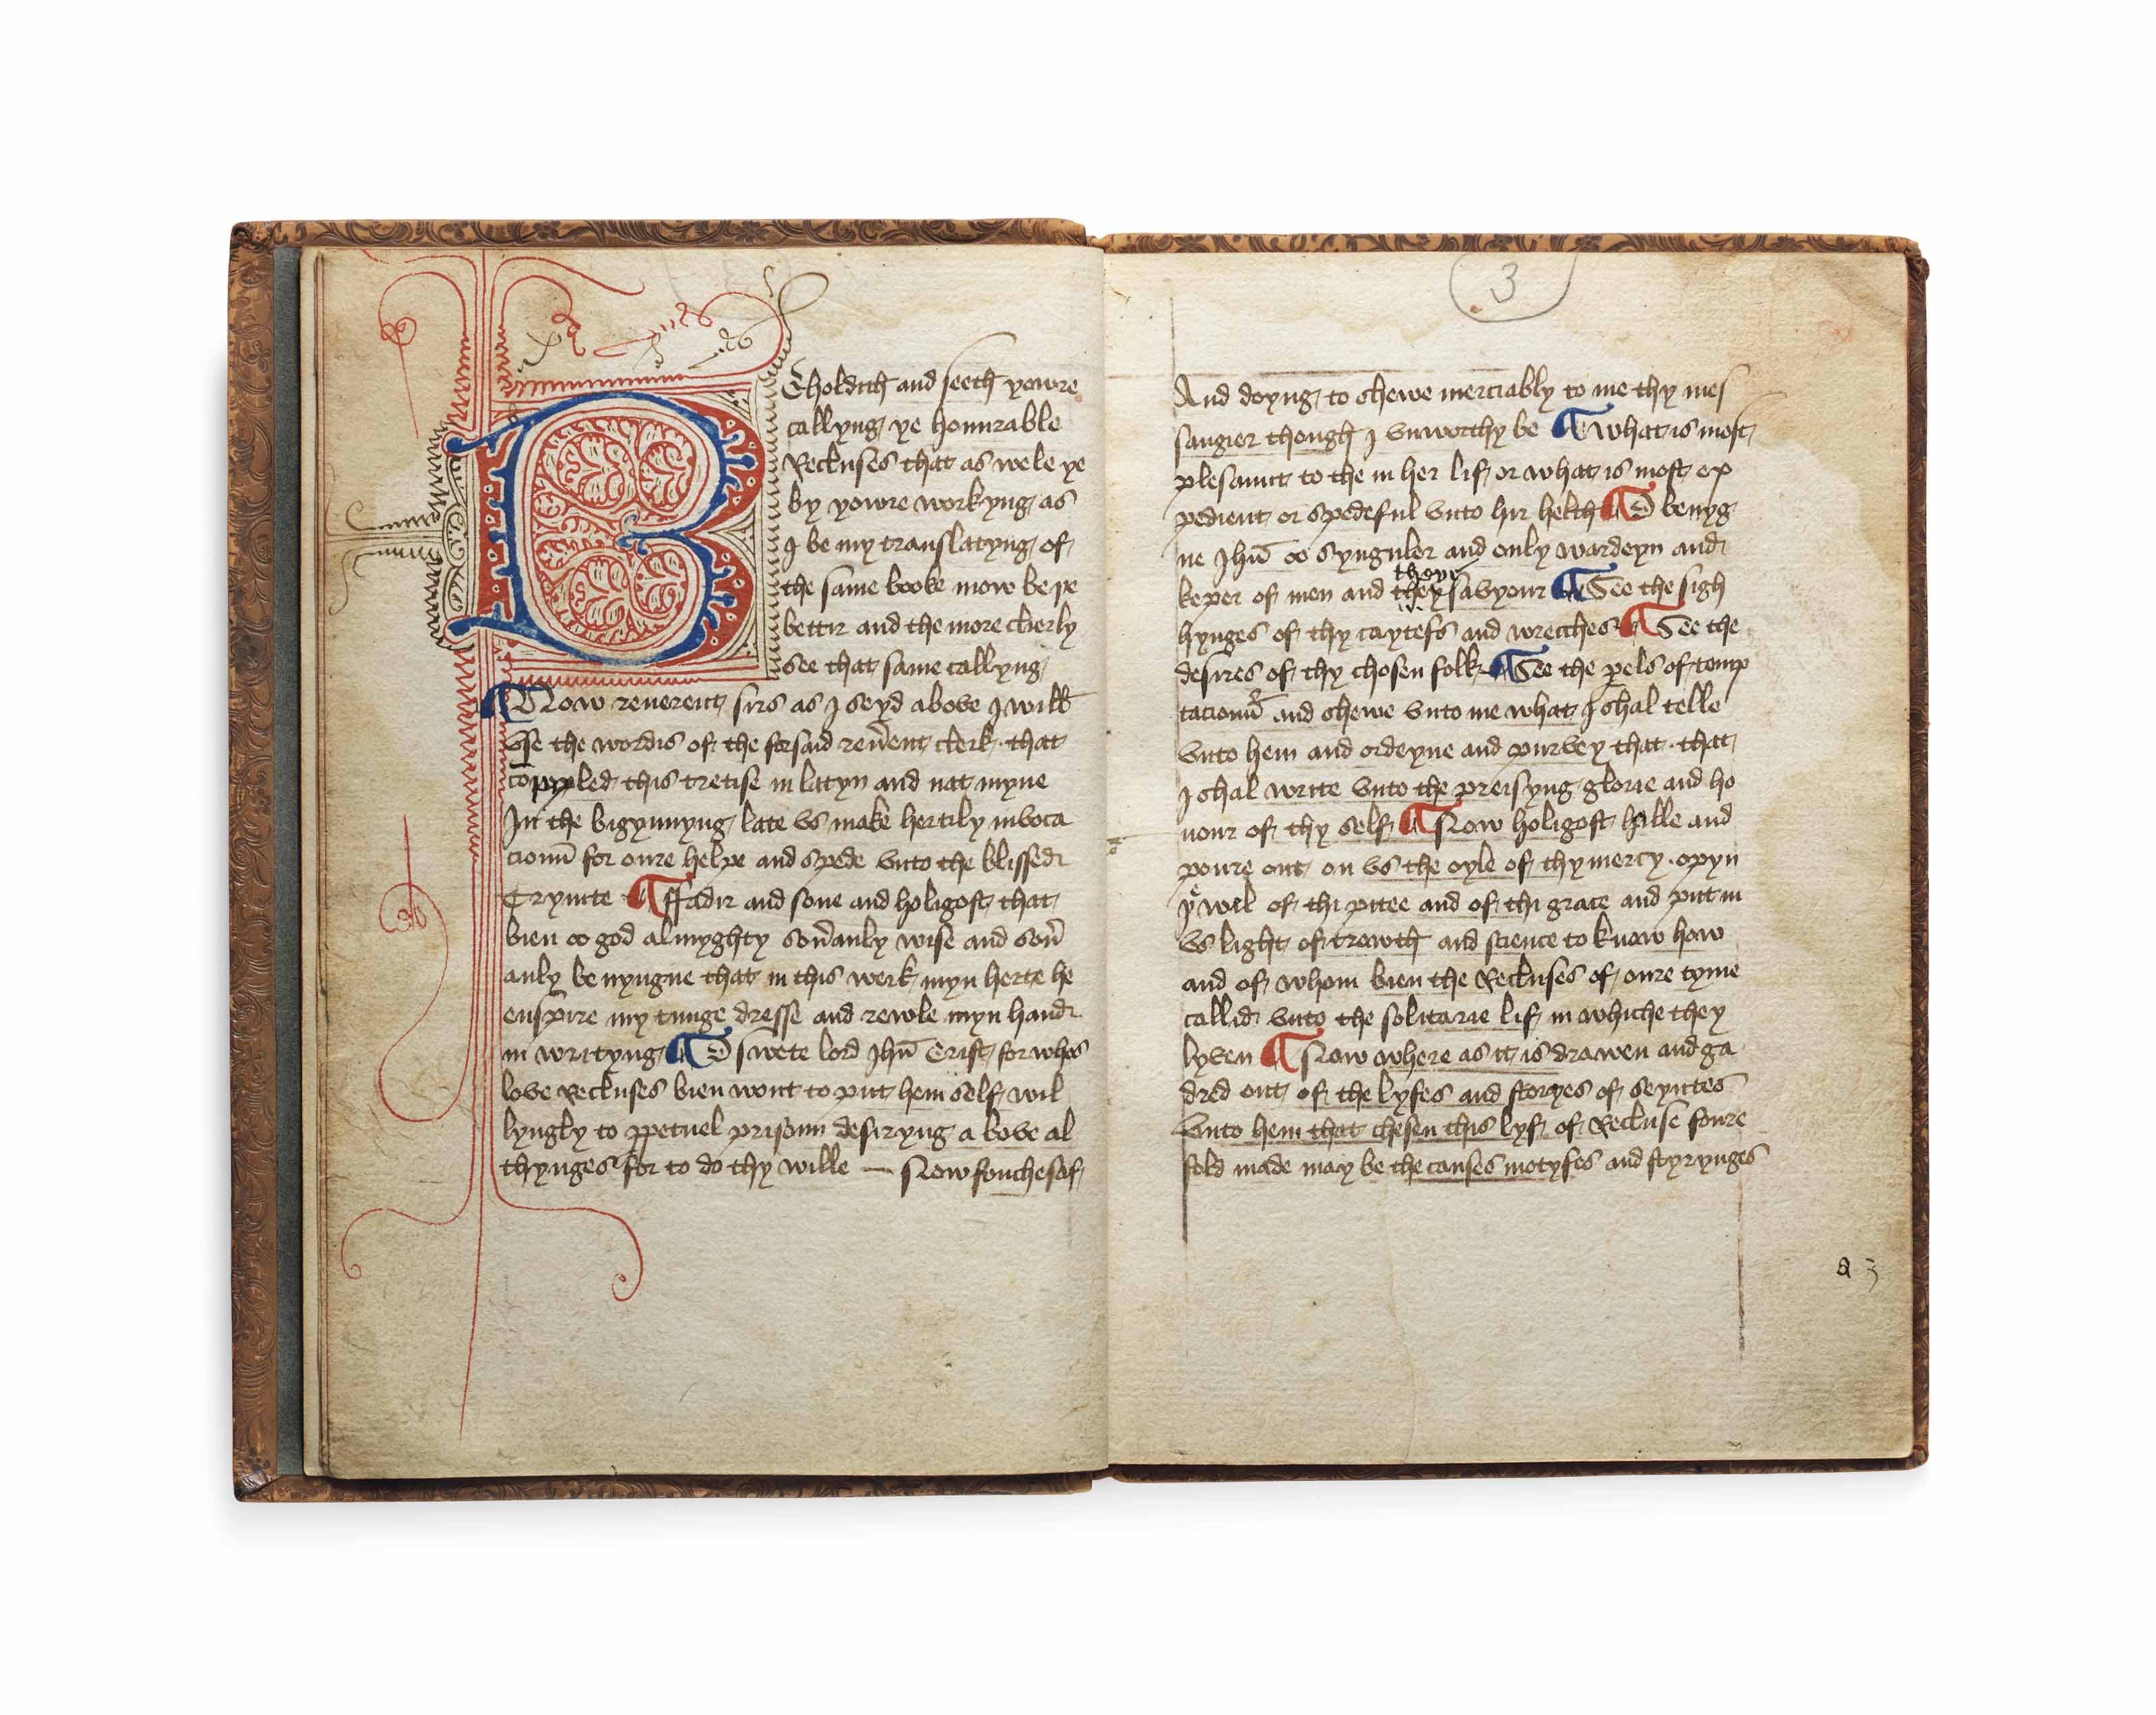 Beholdith and seeth yowre
callyng ye honurable
Recluses that as wele ye
by yowre workyng as
I be my translatyng of
the same booke mow be þe
bettir and the more clierly
see that same callyng
¶ Now reuerent sirs as I seyd above I will
vse the wordis of the forsaid reu̅ent clerk · that
compyled this tretise in latyn and nat myne
In the bigynnyng late vs make hertily invoca
cioun̅ for oure helpe and spede vnto the blissed
Trynite ¶ ffadir and sone and holigost that
bien oo god almyghty sou̅anly wise and sou̅
anly benyngne that in this werk myn herte he
enspire my tunge dresse and rewle myn hand
in writyng ¶ O swete lord Ihu̅ Crist for whos
love Recluses bien wont to put hem self wil
lyngly to ꝑpetuel prisoun desiryng a bove al
thynges for to do thy wille — Now fouchesaf
3
And doyng to shewe merciably to me thy mes
sangier though I vnworthy be ¶ what is most
plesaunt to the in her lif or what is most ex
pedient or spedeful vnto hir helth ¶ O benyg
ne Ihu̅ oo synguler and only wardeyn and
keper of men and they theyr savyour ¶ See the sigh
hynges of thy caytefs and wrecches ¶ See the
desires of thy chosen folk ¶ See the ꝑels of temp
tacioun̅ and shewe vnto me what I shal telle
vnto hem and ordeyne and purvey that · that
I shal write vnto the preisyng glorie and ho
nour of thy self ¶ Now holigost hille and
poure out on vs the oyle of thy mercy · opyn
þe wel of thi pitee and of thi grace and put in
vs light of trowth and science to know how
and of whom bien the Recluses of oure tyme
callid vnto the solitarie lif in whiche they
lyven ¶ Now where as it is drawen and ga
dred out of the lyfes and storyes of seyntes
vnto hem that chesen this lyf of Recluse foure
fold made may be the causes motyfes and styrynges
a 3